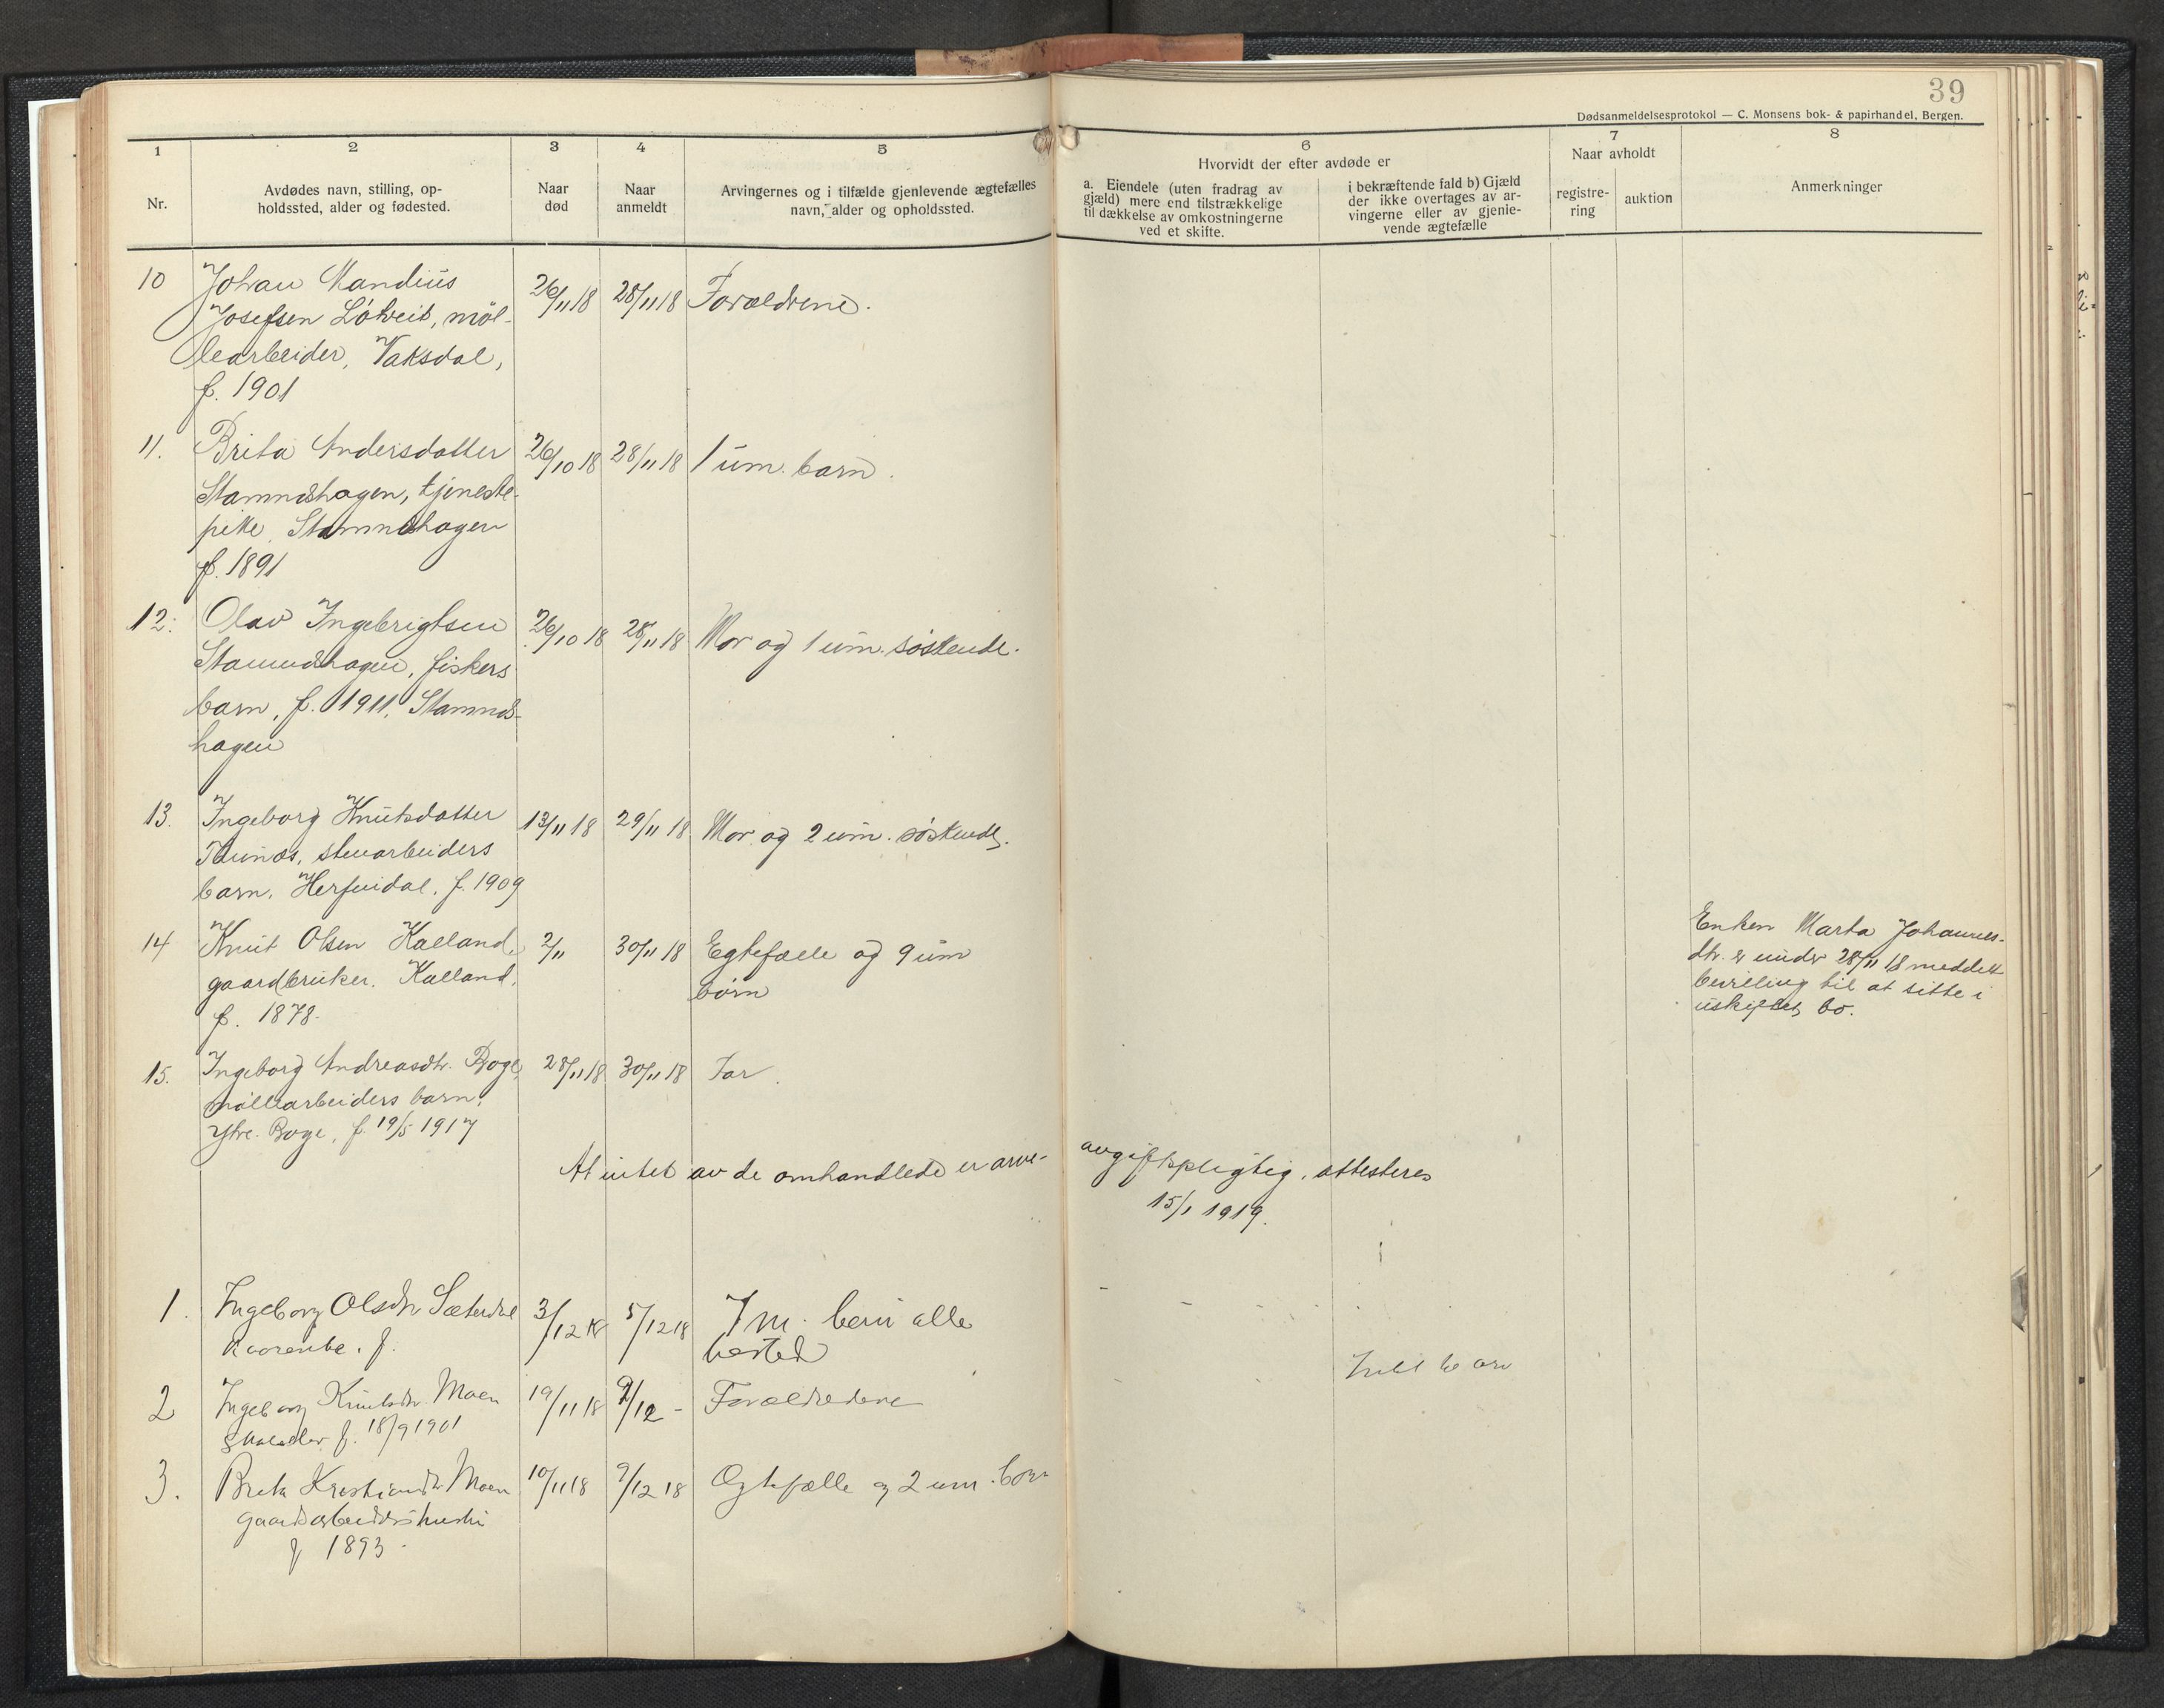 39
Dødsanmeldelsesprotokol — C. Monsens bok- & papirhandel, Bergen.
1
2
3
4
5
6
7
8
Nr.
Avdødes navn, stilling, op-
holdssted, alder og fødested.
Naar
død
Naar
anmeldt
Arvingernes og i tilfælde gjenlevende ægtefælles
navn, alder og opholdssted.
Hvorvidt der efter avdøde er
a. Eiendele (uten fradrag av
gjæld) mere end tilstrækkelige
til dækkelse av omkostningerne
ved et skifte.
i bekræftende fald b) Gjæld
der ikke overtages av ar-
vingerne eller av gjenle-
vende ægtefælle
Naar avholdt
registre-
ring
auktion
Anmerkninger
10 Johan Mandius 26/11 18 28/11 18 Forældrene.
Josefsen Lötveit, möl-
learbeider, Vaksdal,
f. 1901
11. Brita Andersdatter 26/10 18 28/11 18 1 um. barn.
Stamneshagen, tjeneste-
pike, Stamneshagen
f. 1891
12. Olav Ingebrigtsen 26/10 18 28/11 18 Mor og 1 um. söskende.
Stamneshagen, fiskers
barn, f. 1911, Stamnes-
hagen
13. Ingeborg Knutsdatter 13/11 18 29/11 18 Mor og 2 um. söskende.
stenarbeiders
barn, Herfindal, f. 1909
14 Knut Olsen Kalland, 2/11 30/11 18 Egtefælle og 9 um
gaardbruker, Kalland, börn
f. 1878.
Enken Marta Johannes-
dtr. er under 28/11 18 meddelt
bevilling til at sitte i
uskiftet bo.
15. Ingeborg Andreasdtr. Boge, 28/11 18 30/11 18 Far.
möllearbeiders barn,
Ytre Boge, f. 19/5 1917
At intet av de omhandlede er arve- avgiftspligtig, attesteres
15/1 1919.
1. Ingeborg Olsdtr Sæterdal 3/12 18 5/12 18 7 m. børn alle
f. hersted
2 Ingeborg Knutsdtr. Moen 19/11 18 9/12 - Forældrene
f. 18/9 1901
3. Brita Kristiansdtr Moen 10/11 18 9/12 18 Egtefælle og 2 um. børn
gaardsarbeiders hustru
f 1893.